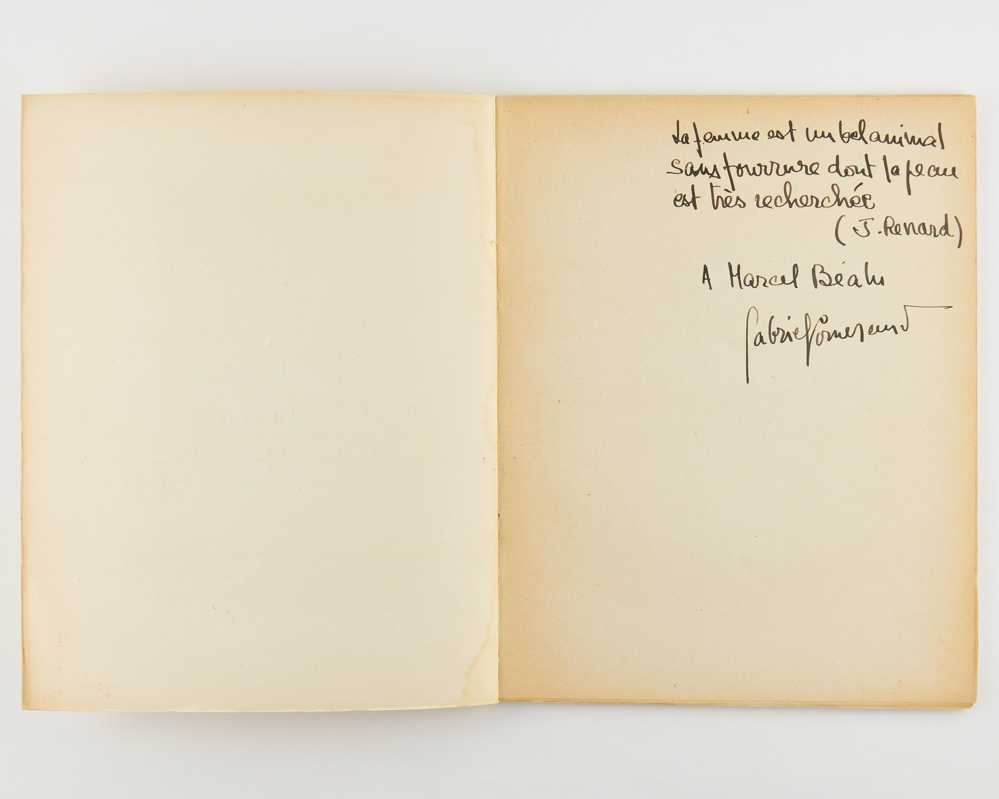 La femme est un bel animal
sans fourrure dont la peau
est très recherchée
(J. Renard)
A Marcel Béalu
Gabriel Pomerand